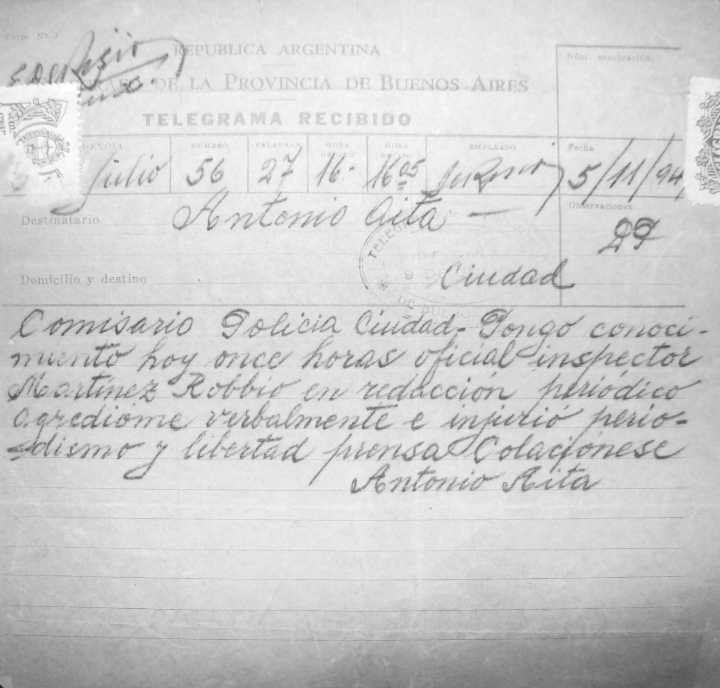 REPUBLICA ARGENTINA
DE LA PROVINCIA DE BUENOS AIRES
TELEGRAMA RECIBIDO
NUMERO PALABRAS HORA HORA EMPLEADO Fecha
Julio 56 27 16 16 05 5/11/94
Destinatario Antonio Aita Observaciones
27
Domicilio y destino Ciudad
Comisario Policia Ciudad - Pongo conoci-
miento hoy once horas oficial inspector
Martinez Robbio en redaccion periódico
agredióme verbalmente e injurió perio-
dismo y libertad prensa Colacionese
Antonio Aita